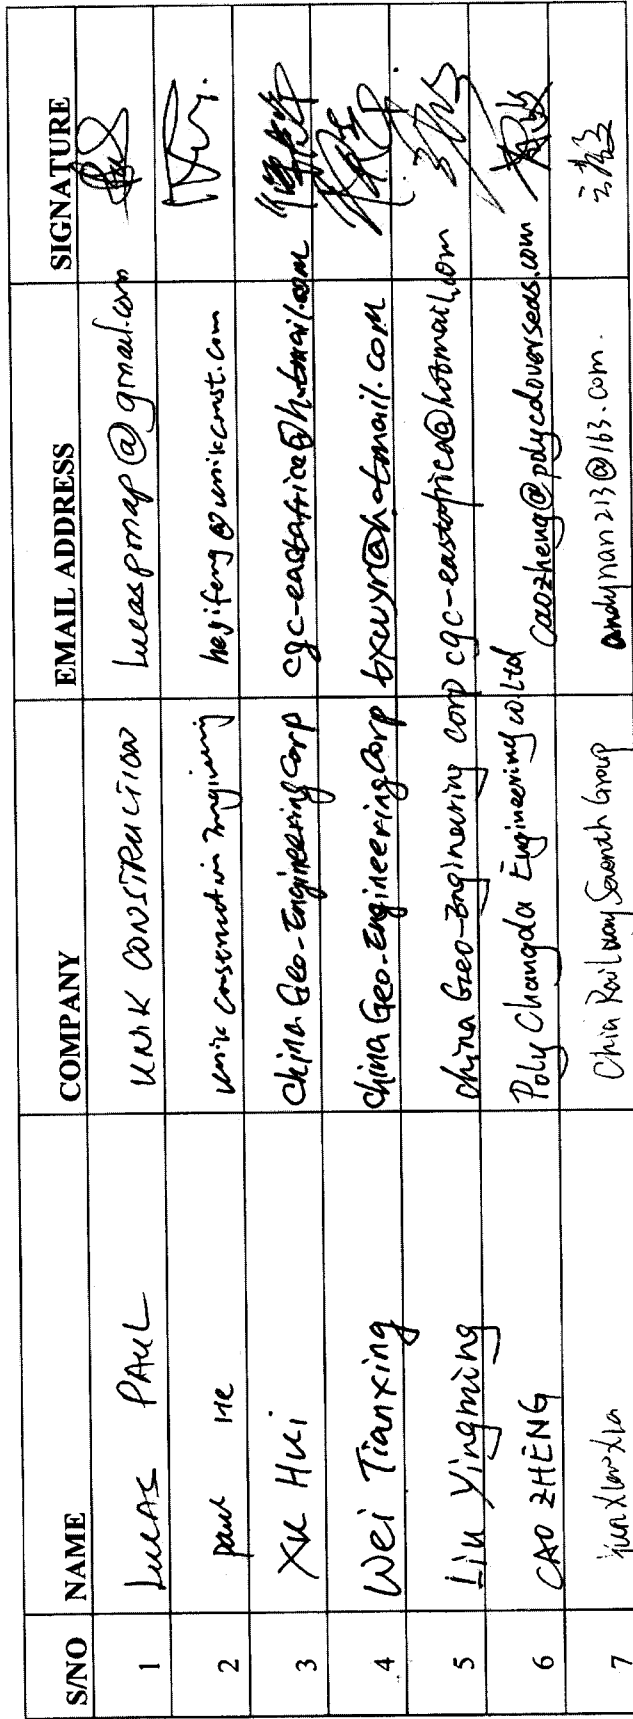 S/NO NAME COMPANY EMAIL ADDRESS SIGNATURE
1 LUCAS PAUL UNIK CONSTRUCTION lucaspmap@gmail.com
2 paul HE unik construction Engineering heyifeng@unikconst.com
3 XU HUI China Geo-Engineering Corp cgc-eastafrica@hotmail.com
4 Wei Tianxing China Geo-Engineering Corp bxwyr@hotmail.com
5 Liu Yingming China Geo-Engineering Corp cgc-eastafrica@hotmail.com
6 CAO ZHENG Poly Changda Engineering co. Ltd caozheng@polycdoverseas.com
7 Chin Railway Seventh Group andynan213@163.com.